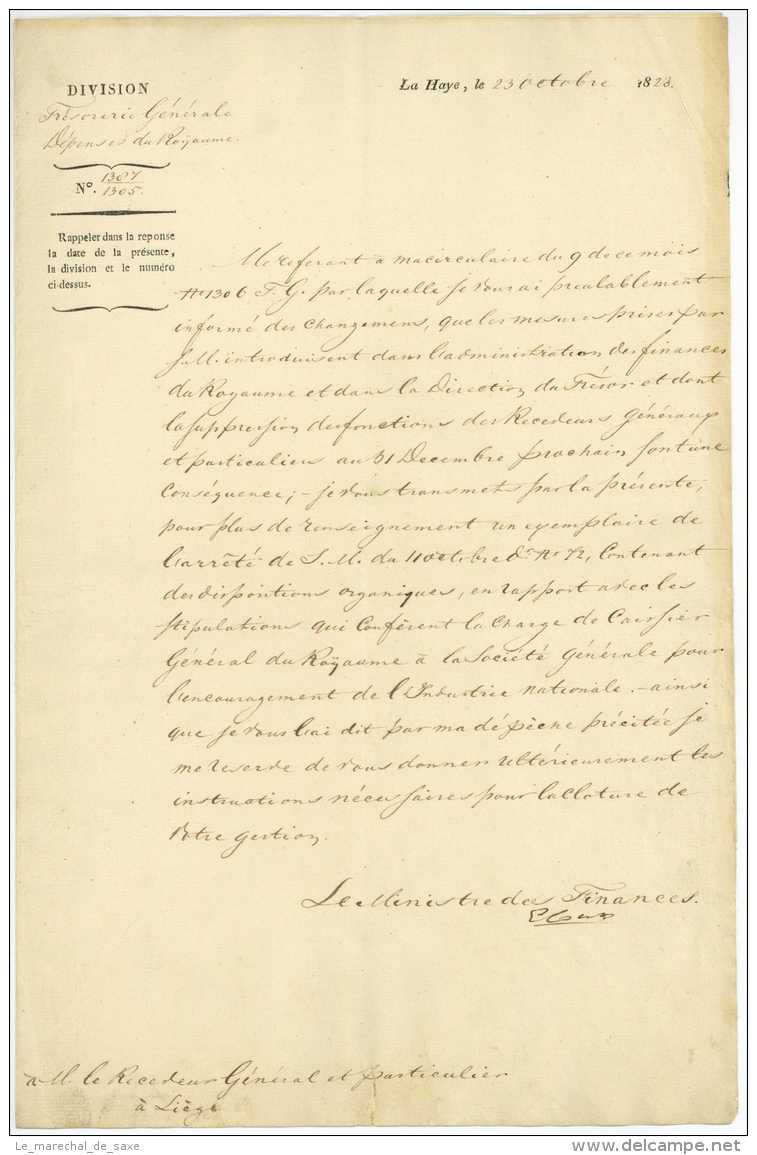 DIVISION
Trésorerie Générale
Dépenses du Royaume.
La Haye, le 23 Octobre 1823.
N°. 1307
1305.
Rappeler dans la reponse
la date de la présente,
la division et le numéro
ci-dessus.
Me referant à ma circulaire du 9 de ce mois
N° 1306 F. G. par laquelle je vous ai préalablement
informé des changemens, que les mesures prises par
S. M. introduisent dans l'administration des finances
du Royaume et dans la Direction du Trésor et dont
la suppression des fonctions des Receveurs Généraux
et particuliers au 31 Decembre prochain font une
Conséquence; - je vous transmets par la présente,
pour plus de renseignement un exemplaire de
l'arrêté de S. M. du 11 octobre d.r N° 72, Contenant
des dispositions organiques, en rapport avec les
stipulations qui Confèrent la Charge de Caissier
Général du Royaume à la Société Générale pour
l'encouragement de l'Industrie nationale. - ainsi
que je vous l'ai dit par ma dépêche précitée je
me reserve de vous donner ultérieurement les
instructions nécessaires pour la cloture de
votre gestion.
Le Ministre des Finances.
à M. le Receveur Général et particulier
à Liège
Le_marechal_de_saxe
delcampe.net